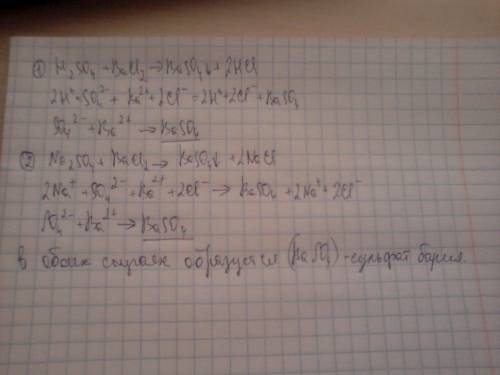 ① H₂SO₄ + BaCl₂ → BaSO₄↓ + 2HCl
2H⁺ + SO₄²⁻ + Ba²⁺ + 2Cl⁻ = 2H⁺ + 2Cl⁻ + BaSO₄
SO₄²⁻ + Ba²⁺ → BaSO₄
② Na₂SO₄ + BaCl₂ → BaSO₄↓ + 2NaCl
2Na⁺ + SO₄²⁻ + Ba²⁺ + 2Cl⁻ → BaSO₄ + 2Na⁺ + 2Cl⁻
SO₄²⁻ + Ba²⁺ → BaSO₄
в обоих случаях образуется (BaSO₄) - сульфат бария.